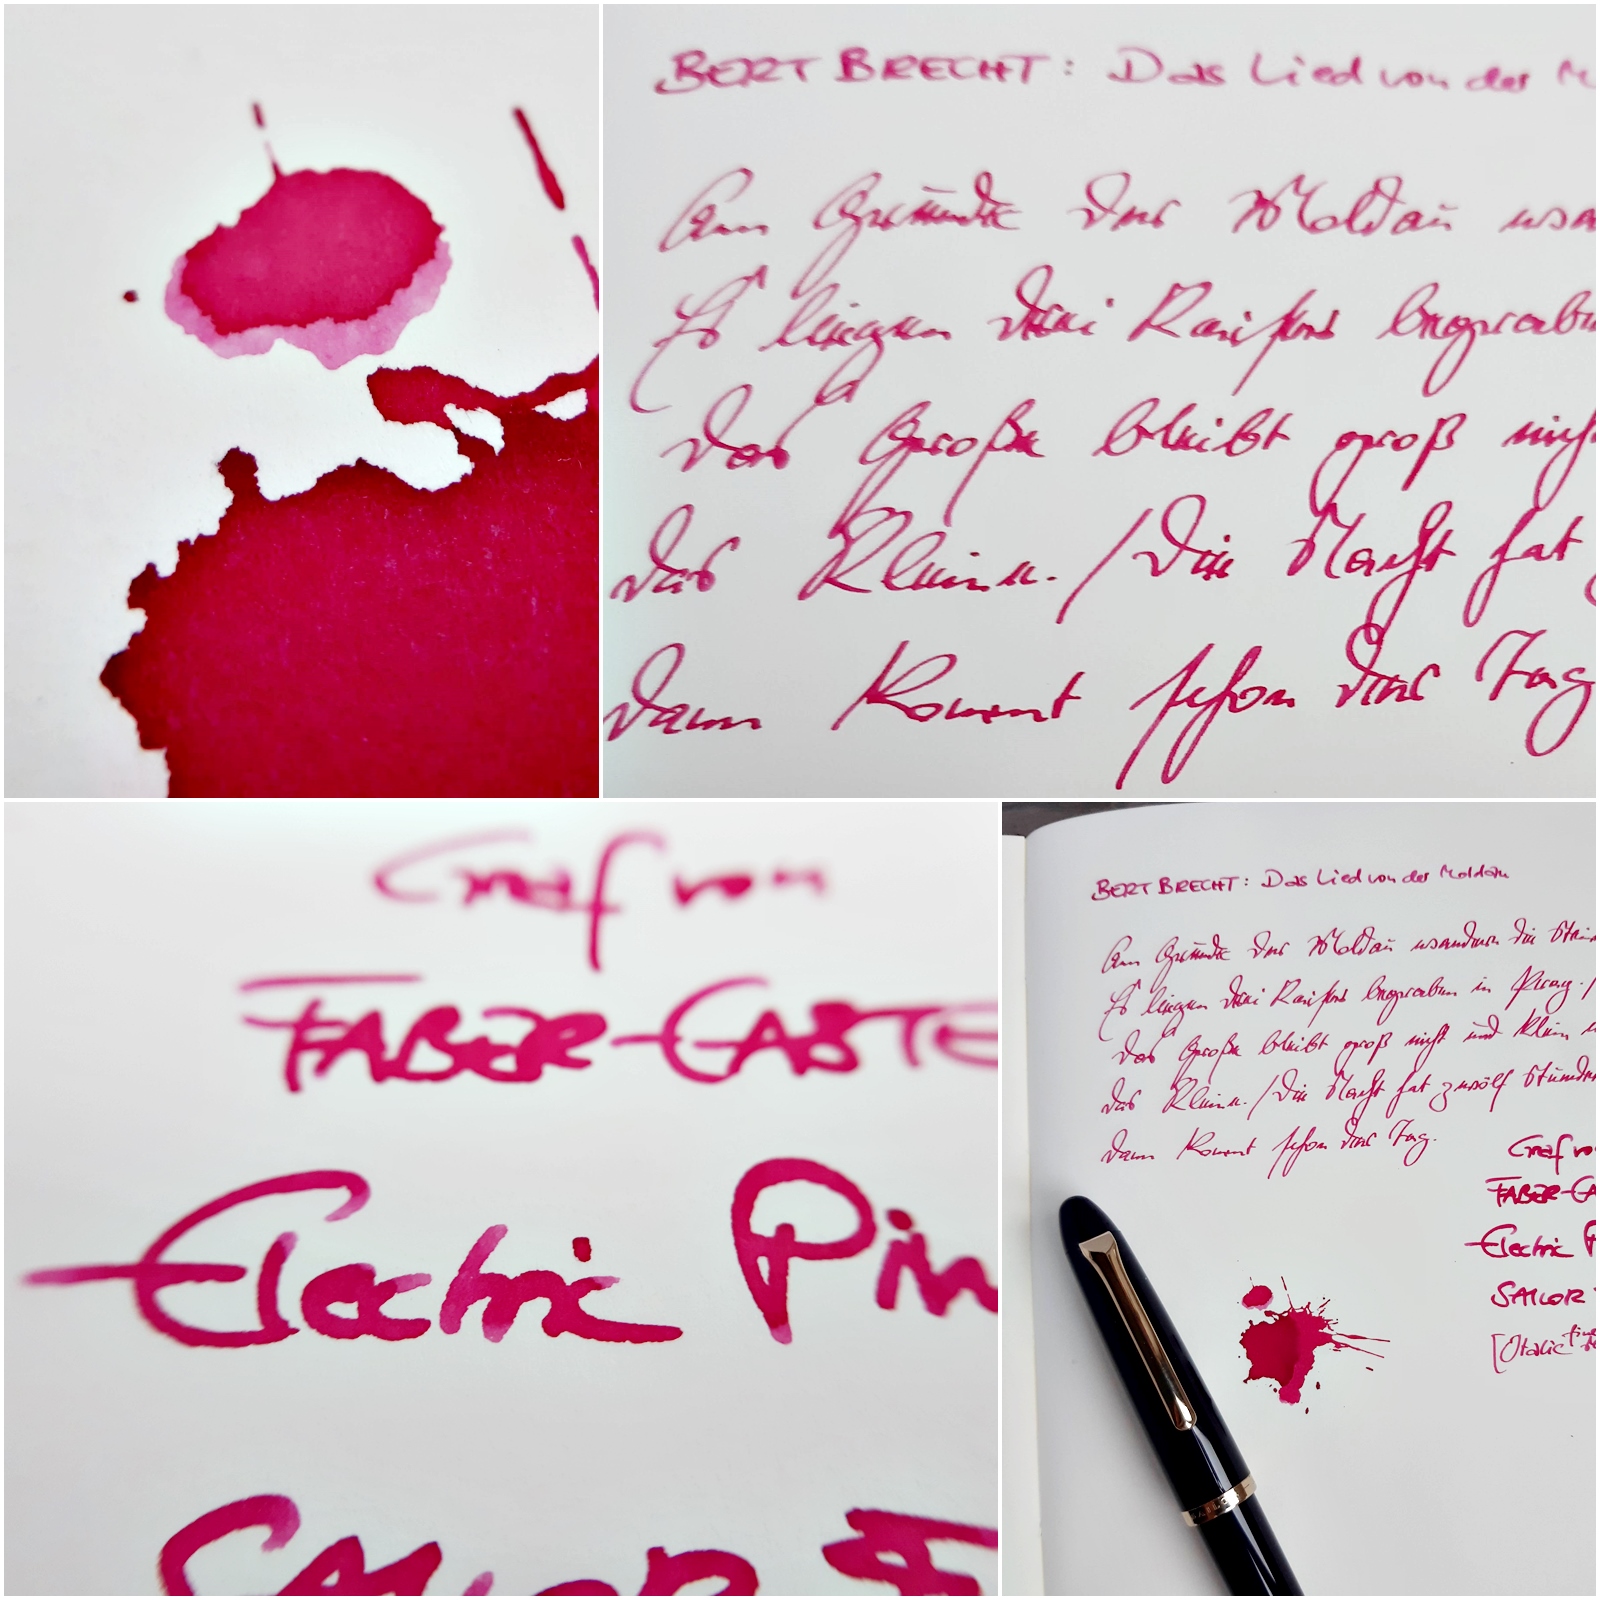 BERT BRECHT: Das Lied von der M
Am Grunde der Moldau wan
Es liegen drei Kaiser begraben
Das Große bleibt groß nich
das Kleine. / Die Nacht hat
dann kommt schon der Tag
Graf von
FABER-CASTE
Electric Pin
SAILOR
BERT BRECHT: Das Lied von der Moldau
Am Grunde der Moldau wandern die Stein
Es liegen drei Kaiser begraben in Prag. /
Das Große bleibt groß nicht und klein
das Kleine. / Die Nacht hat zwölf Stunden
dann kommt schon der Tag.
Graf vo
FABER-CA
Electric P
SAILOR
[Italic fine